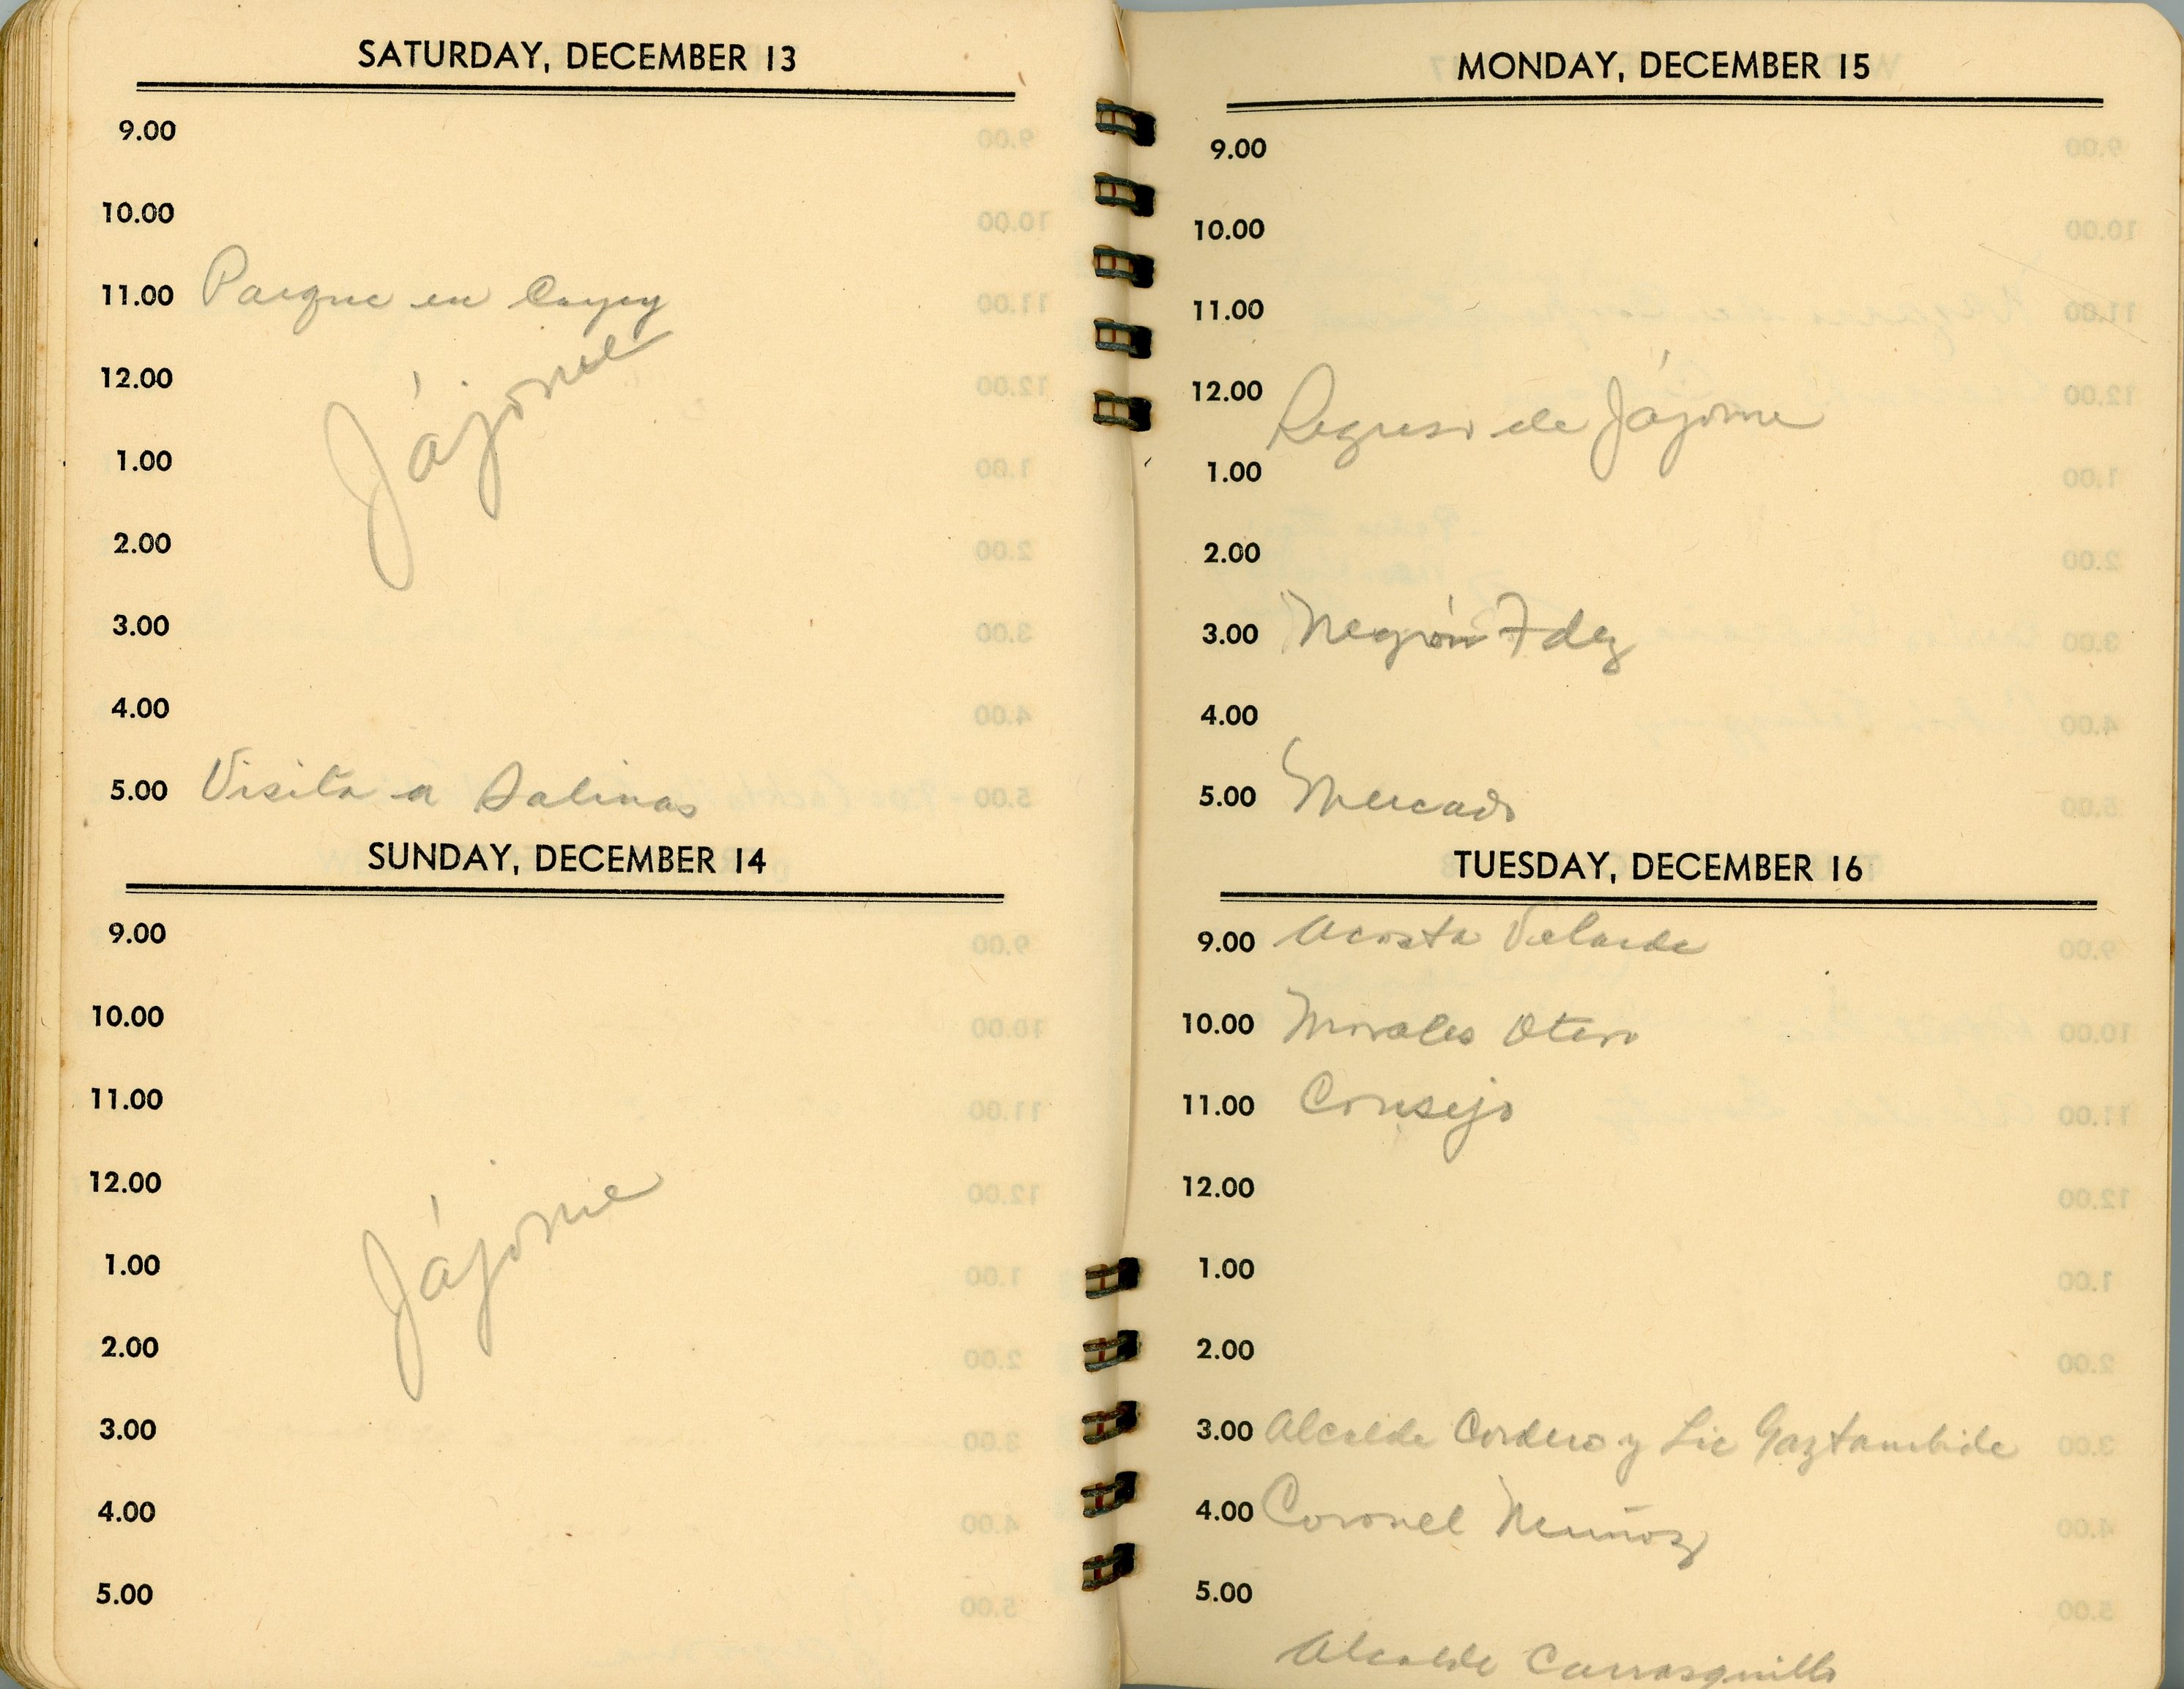 SATURDAY, DECEMBER 13
9.00
10.00
11.00 Parque en Cayey
12.00
Jájome
1.00
2.00
3.00
4.00
5.00 Visita a Salinas
SUNDAY, DECEMBER 14
9.00
10.00
11.00
12.00
Jájome
1.00
2.00
3.00
4.00
5.00
MONDAY, DECEMBER 15
9.00
10.00
11.00
12.00
Regreso de Jájome
1.00
2.00
3.00 Negrón Fdez
4.00
5.00 Mercado
TUESDAY, DECEMBER 16
9.00 Acosta Velarde
10.00 Morales Otero
11.00 Consejo
12.00
1.00
2.00
3.00 Alcalde Cordero y Lic Gaztambide
4.00 Coronel Muñoz
5.00
Alcalde Carrasquillo